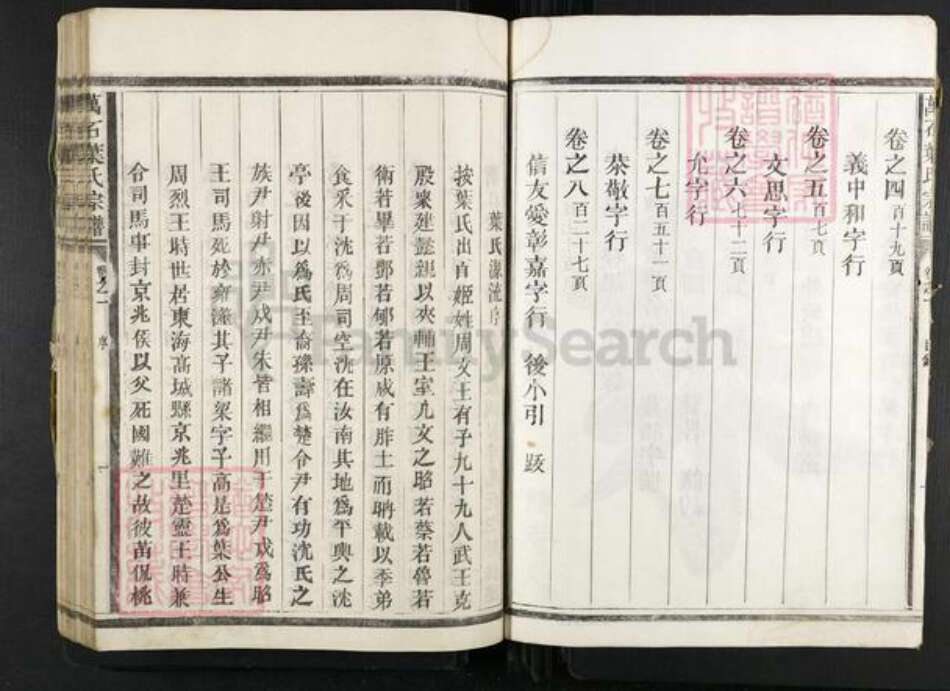 卷之四 百十九頁
義中和字行
卷之五 百七頁
文思字行
卷之六 七十二頁
允字行
卷之七 百五十一頁
恭敬字行
卷之八 百二十七頁
信友愛彰嘉字行 後小引 跋
葉氏源流序
按葉氏出自姬姓周文王有子九十九人武王克
殷衆建懿親以夾輔王室凡文之昭若蔡若魯若
衛若畢若鄷若郇若原咸有胙土而聃載以季弟
食采于沈爲周司空沈在汝南其地爲平輿之沈
亭後因以爲氏至裔孫壽爲楚令尹有功沈氏之
族尹射尹赤尹戌尹朱皆相繼用于楚尹戌爲昭
王司馬死於雍澨其子諸梁字子高是爲葉公生
周烈王時世居東海高城縣京兆里楚靈王時兼
令司馬事封京兆侯以父死國難之故彼苗侃桃
萬石葉氏宗譜 卷之一 序
FamilySearch